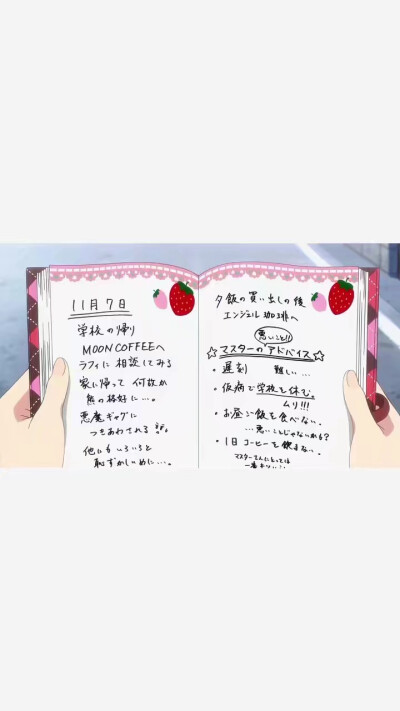 11月7日
学校の帰り
MOON COFFEEへ
ラフィに相談してみる
家に帰って 何故か
熊の格好に…。
悪魔ギャグに
つきあわされる
他にもいろいろと
恥ずかしいめに…。
夕飯の買い出しの後
エンジェル珈琲へ
悪いこと!!
☆マスターのアドバイス☆
・遅刻 難しい…
・仮病で学校を休む。
ムリ!!!
・お昼ご飯を食べない。
…悪いことじゃないかも?
・1日コーヒーを飲まない。
マスターさんにとっては
一番キツい